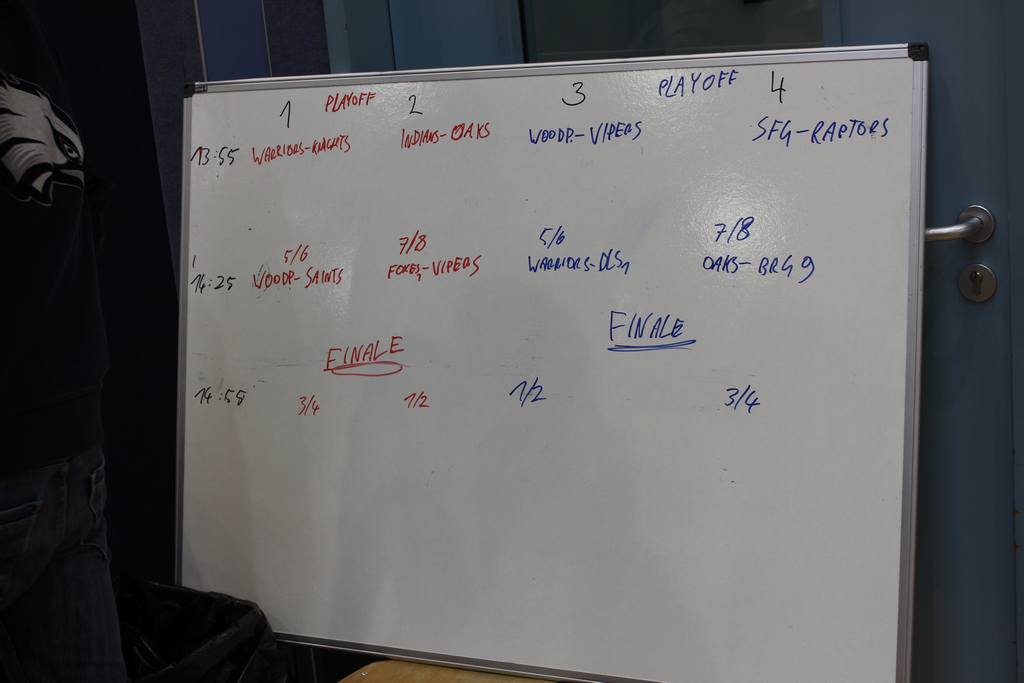 1 PLAYOFF 2 3 PLAYOFF 4
13:55 WARRIORS-KNIGHTS INDIANS-OAKS WOODP.-VIPERS SFG-RAPTORS
5/6 7/8 5/6 7/8
14:25 WOODP-SAINTS FOXES-VIPERS WARRIORS-DLS1 OAKS-BRG9
FINALE FINALE
14:58 3/4 1/2 1/2 3/4